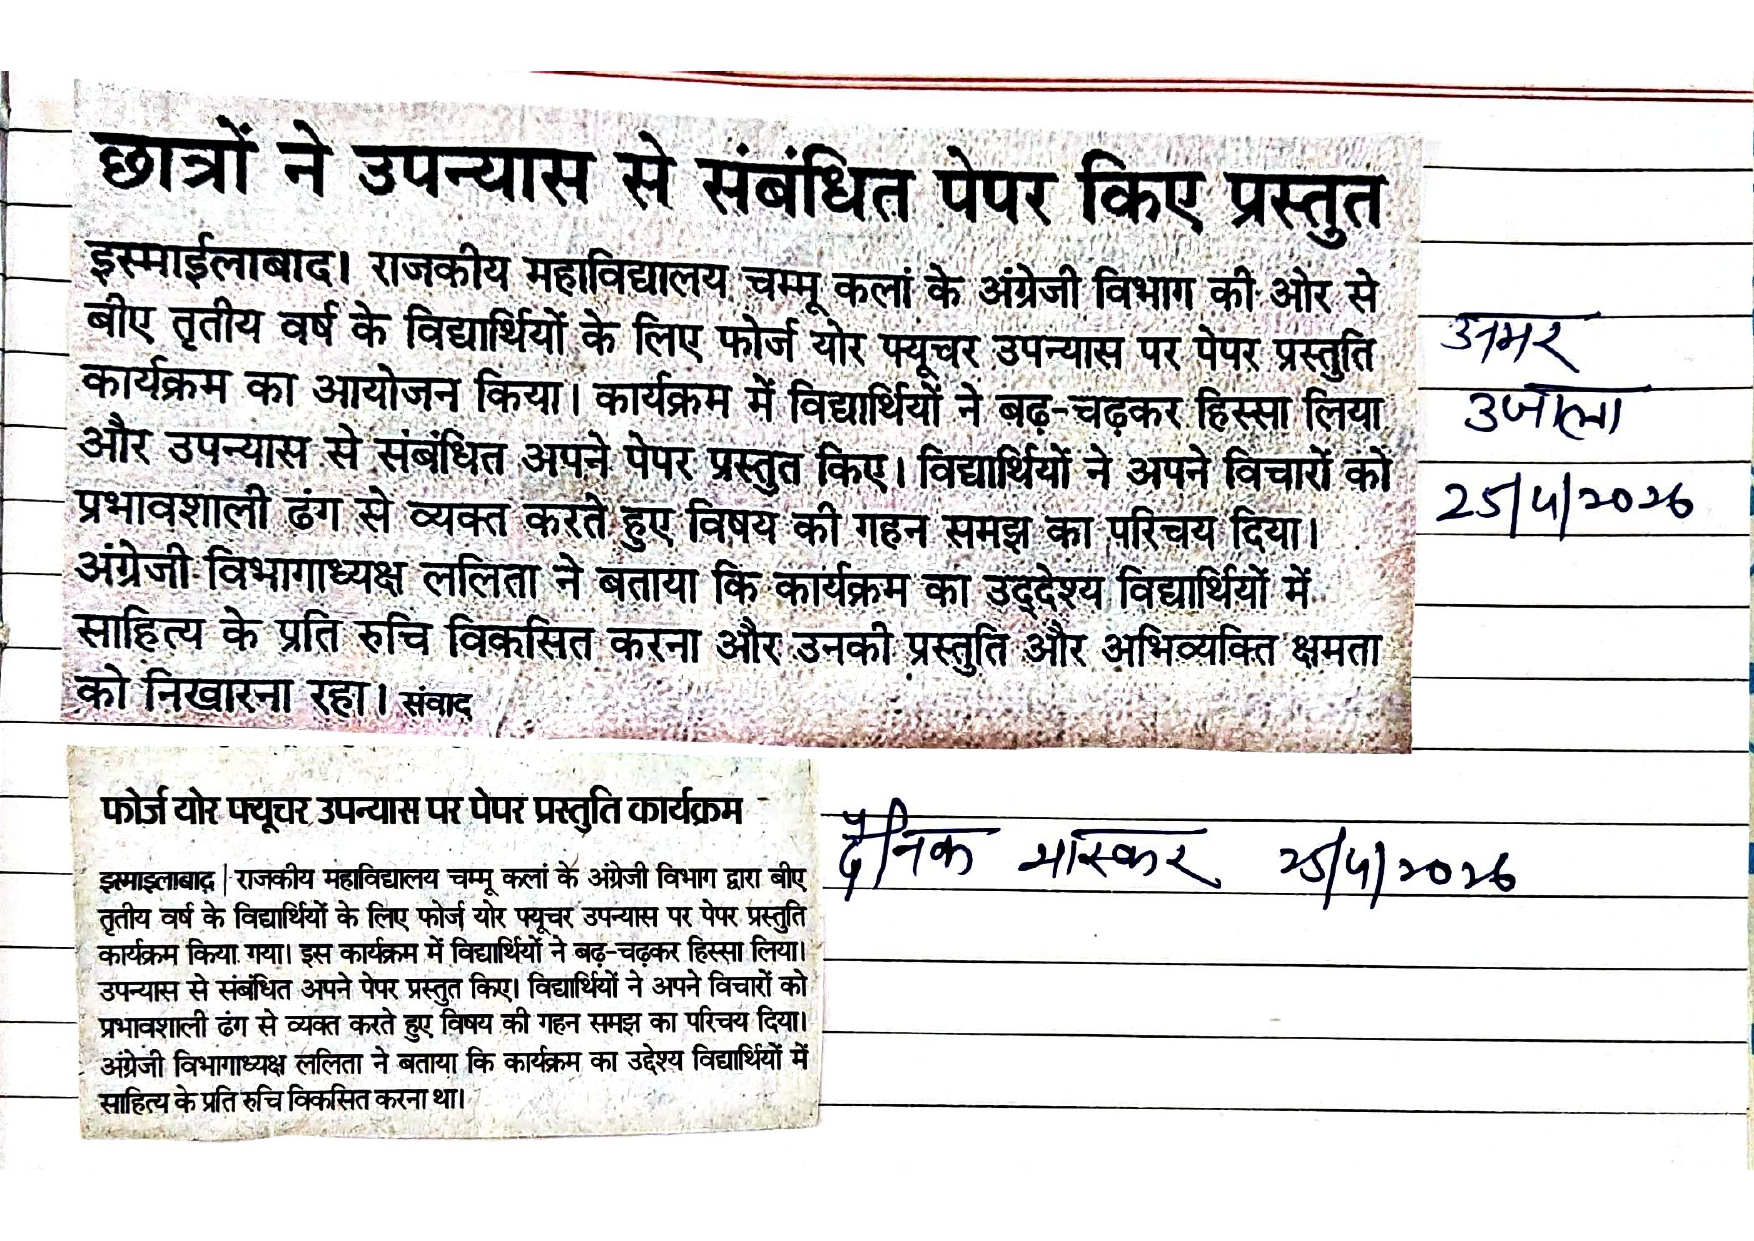 छात्रों ने उपन्यास से संबंधित पेपर किए प्रस्तुत
इस्माईलाबाद। राजकीय महाविद्यालय चम्मू कलां के अंग्रेजी विभाग की ओर से
बीए तृतीय वर्ष के विद्यार्थियों के लिए फोर्ज योर फ्यूचर उपन्यास पर पेपर प्रस्तुति
कार्यक्रम का आयोजन किया। कार्यक्रम में विद्यार्थियों ने बढ़-चढ़कर हिस्सा लिया
और उपन्यास से संबंधित अपने पेपर प्रस्तुत किए। विद्यार्थियों ने अपने विचारों को
प्रभावशाली ढंग से व्यक्त करते हुए विषय की गहन समझ का परिचय दिया।
अंग्रेजी विभागाध्यक्ष ललिता ने बताया कि कार्यक्रम का उद्देश्य विद्यार्थियों में
साहित्य के प्रति रुचि विकसित करना और उनकी प्रस्तुति और अभिव्यक्ति क्षमता
को निखारना रहा। संवाद
अमर
उजाला
25/4/2026
फोर्ज योर फ्यूचर उपन्यास पर पेपर प्रस्तुति कार्यक्रम
इस्माइलाबाद | राजकीय महाविद्यालय चम्मू कलां के अंग्रेजी विभाग द्वारा बीए
तृतीय वर्ष के विद्यार्थियों के लिए फोर्ज योर फ्यूचर उपन्यास पर पेपर प्रस्तुति
कार्यक्रम किया गया। इस कार्यक्रम में विद्यार्थियों ने बढ़-चढ़कर हिस्सा लिया।
उपन्यास से संबंधित अपने पेपर प्रस्तुत किए। विद्यार्थियों ने अपने विचारों को
प्रभावशाली ढंग से व्यक्त करते हुए विषय की गहन समझ का परिचय दिया।
अंग्रेजी विभागाध्यक्ष ललिता ने बताया कि कार्यक्रम का उद्देश्य विद्यार्थियों में
साहित्य के प्रति रुचि विकसित करना था।
दैनिक भास्कर 25/4/2026